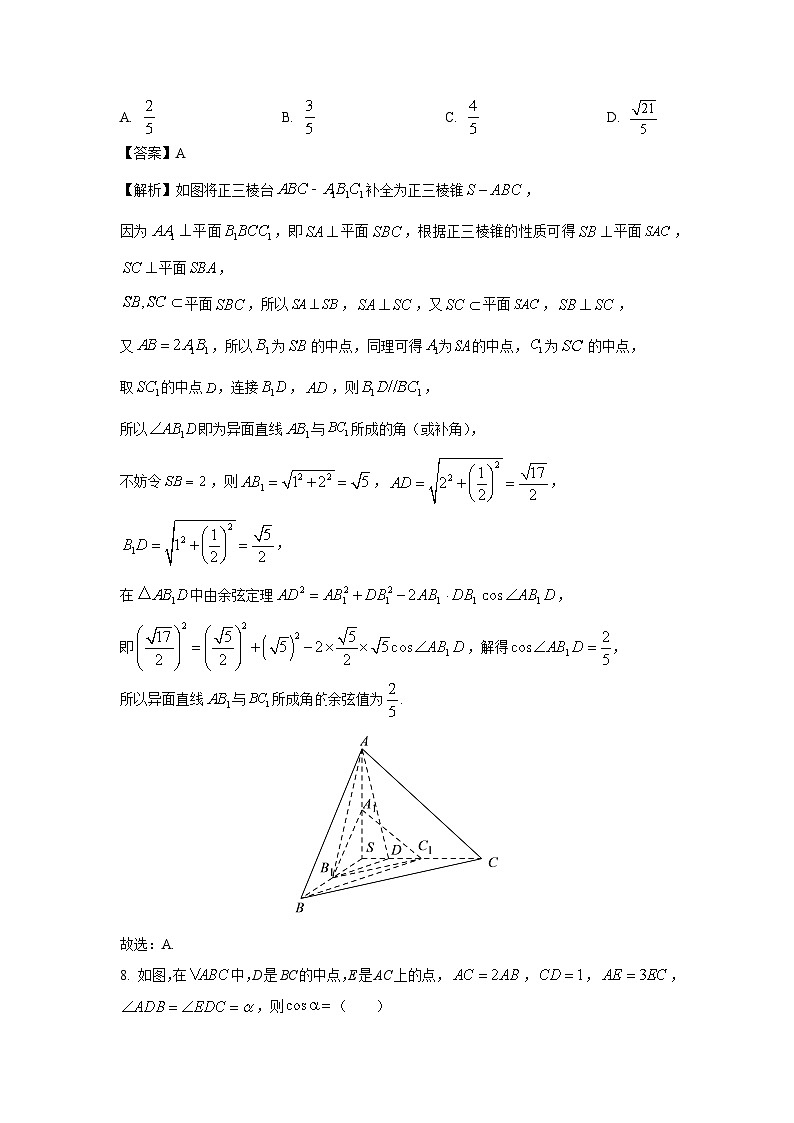 A. 2/5 B. 3/5 C. 4/5 D. √21/5
【答案】A
【解析】如图将正三棱台 ABC - A₁B₁C₁ 补全为正三棱锥 S - ABC，
因为 AA₁ ⊥平面 B₁BCC₁，即 SA ⊥平面 SBC，根据正三棱锥的性质可得 SB ⊥平面 SAC，
SC ⊥平面 SBA，
SB, SC ⊂平面 SBC，所以 SA ⊥ SB，SA ⊥ SC，又 SC ⊂平面 SAC，SB ⊥ SC，
又 AB = 2A₁B₁，所以 B₁ 为 SB 的中点，同理可得 A₁ 为 SA 的中点，C₁ 为 SC 的中点，
取 SC₁ 的中点 D，连接 B₁D，AD，则 B₁D//BC₁，
所以∠AB₁D 即为异面直线 AB₁ 与 BC₁ 所成的角（或补角），
不妨令 SB = 2，则 AB₁ = √(1² + 2²) = √5，AD = √(2² + (1/2)²) = √17/2，
B₁D = √(1² + (1/2)²) = √5/2，
在 △AB₁D 中由余弦定理 AD² = AB₁² + DB₁² − 2AB₁ · DB₁ cos∠AB₁D，
即 (√17/2)² = (√5/2)² + (√5)² − 2×√5/2×√5cos∠AB₁D，解得 cos∠AB₁D = 2/5，
所以异面直线 AB₁ 与 BC₁ 所成角的余弦值为 2/5.
A
A₁
S D C₁ C
B₁
B
故选：A.
8. 如图,在 VABC 中,D 是 BC 的中点,E 是 AC 上的点，AC = 2AB，CD = 1，AE = 3EC，
∠ADB = ∠EDC = α，则 cosα =（ ）